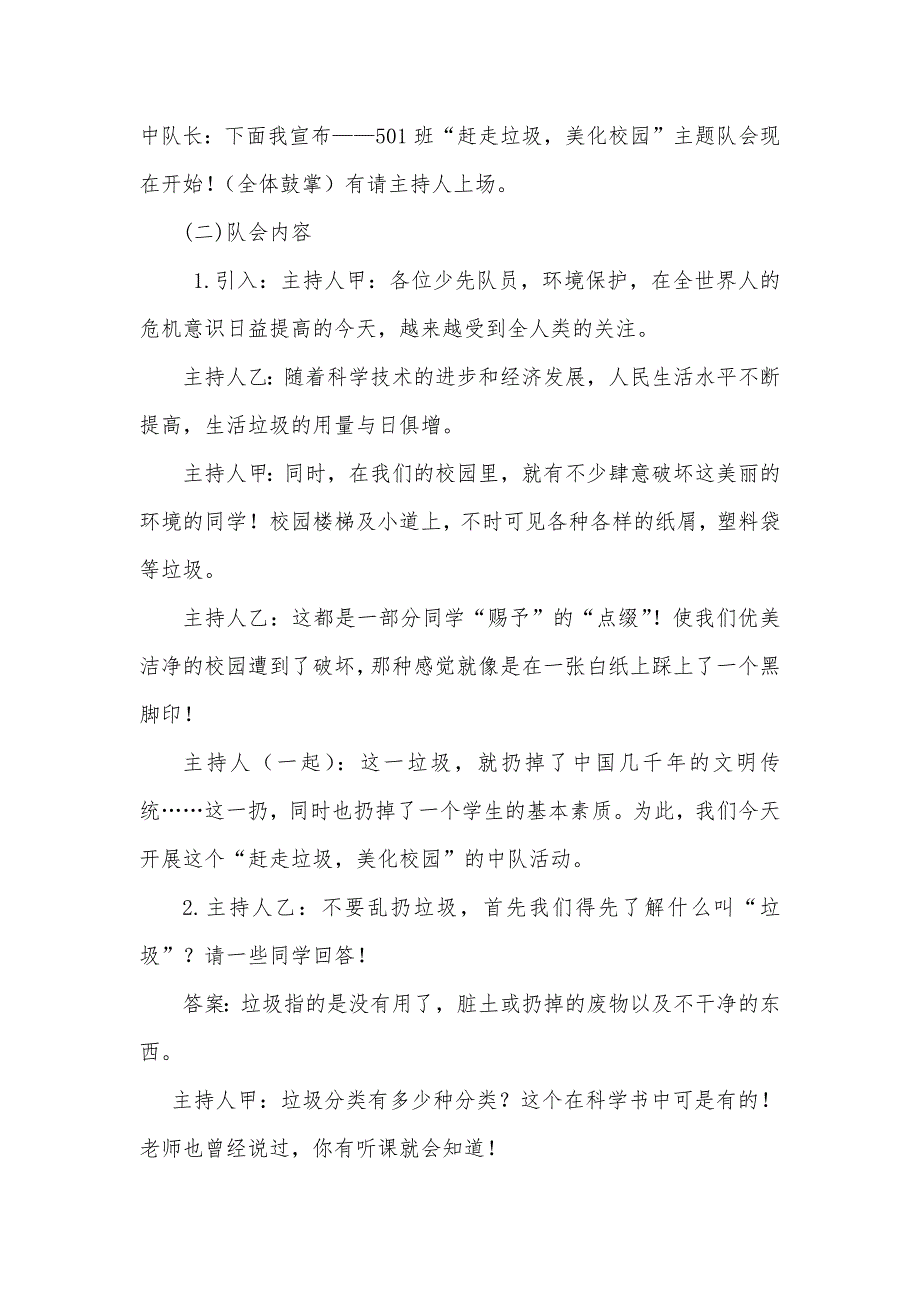 中队长：下面我宣布——501班“赶走垃圾，美化校园”主题队会现
在开始！（全体鼓掌）有请主持人上场。
(二)队会内容
1.引入：主持人甲：各位少先队员，环境保护，在全世界人的
危机意识日益提高的今天，越来越受到全人类的关注。
主持人乙：随着科学技术的进步和经济发展，人民生活水平不断
提高，生活垃圾的用量与日俱增。
主持人甲：同时，在我们的校园里，就有不少肆意破坏这美丽的
环境的同学！校园楼梯及小道上，不时可见各种各样的纸屑，塑料袋
等垃圾。
主持人乙：这都是一部分同学“赐予”的“点缀”！使我们优美
洁净的校园遭到了破坏，那种感觉就像是在一张白纸上踩上了一个黑
脚印！
主持人（一起）：这一垃圾，就扔掉了中国几千年的文明传
统……这一扔，同时也扔掉了一个学生的基本素质。为此，我们今天
开展这个“赶走垃圾，美化校园”的中队活动。
2.主持人乙：不要乱扔垃圾，首先我们得先了解什么叫“垃
圾”？请一些同学回答！
答案：垃圾指的是没有用了，脏土或扔掉的废物以及不干净的东
西。
主持人甲：垃圾分类有多少种分类？这个在科学书中可是有的！
老师也曾经说过，你有听课就会知道！